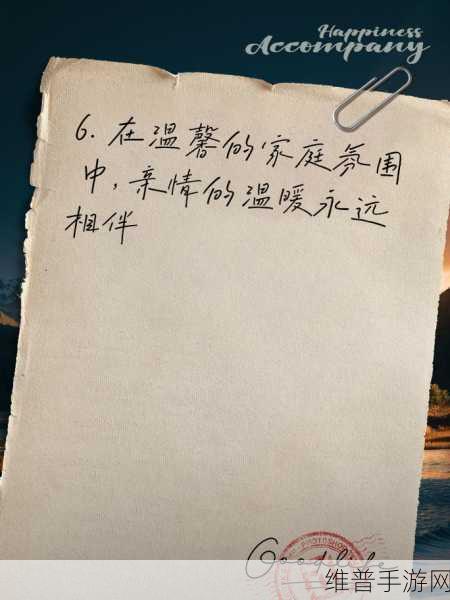 Happiness
Accompany
6. 在温馨的家庭氛围
中，亲情的温暖永远
相伴
PHOTOSHOP
Good life
维普手游网